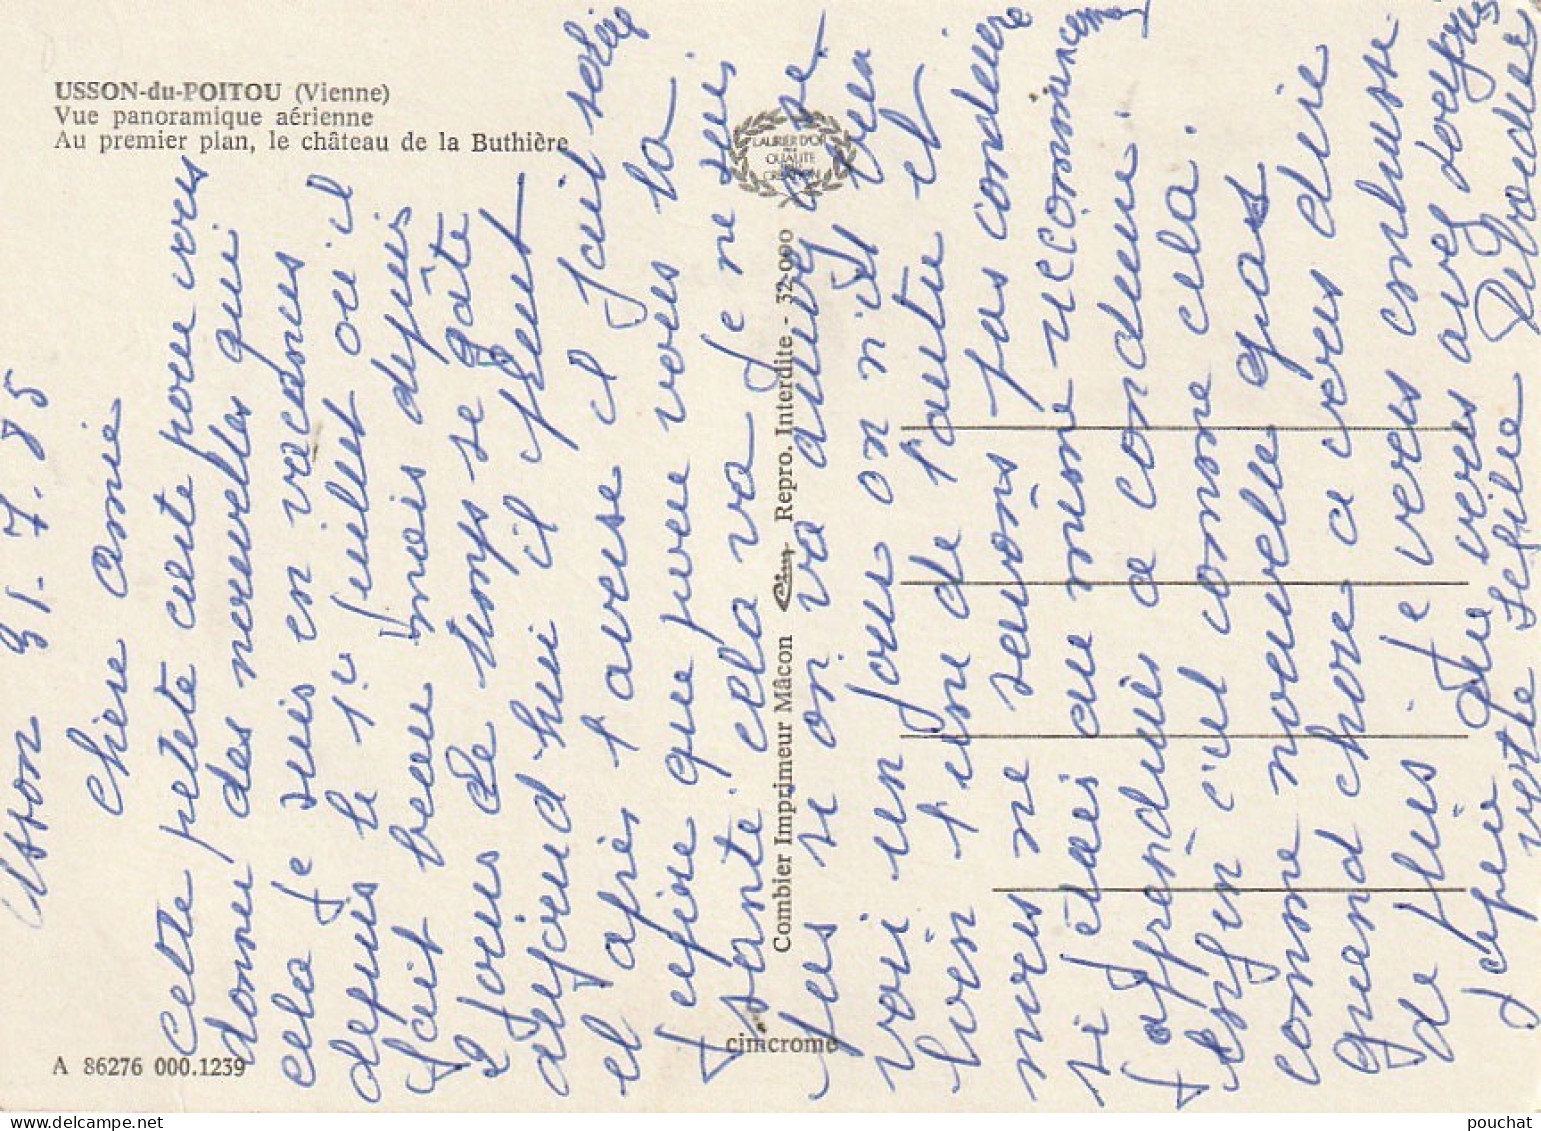 USSON-du-POITOU (Vienne)
Vue panoramique aérienne
Au premier plan, le château de la Buthière
LAURIER D'OR
QUALITÉ
CRÉATION
Combier Imprimeur Mâcon Cim Repro. Interdite - 32-000
cimcrome
A 86276 000.1239
Usson 31.7.85
chère amie
cette petite carte pour vous
donner des nouvelles qui
cela je suis en vacances
depuis le 1er juillet où il
fait beau mais depuis
2 jours le temps se gâte
aujourd'hui il pleut
et après l'averse il fait soleil
j'espère que pour vous la
santé cela va je ne suis
pas si on va arrivé à se
voir un jour on n'est bien
loin l'une de l'autre et
nous ne savons pas conduire
si j'étais au même recommencement
j'apprendrais à conduire.
enfin c'est comme cela.
comme nouvelle pas
grand chose à vous dire
de plus. je vous embrasse
j'espère que vous avez toujours
votre
pouchat